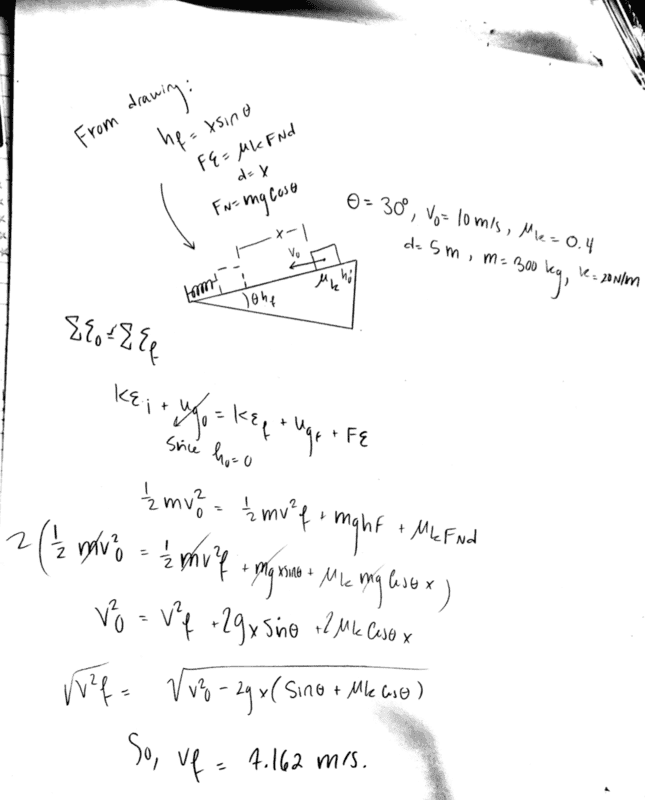 From drawing:
hf = xsinθ
FE = μkFNd
d = x
FN = mgCosθ
θ = 30°, V₀ = 10 m/s, μk = 0.4
d = 5m, m = 300 kg, k = 20N/m
x
V₀
μk
h₀
θ hf
ΣE₀ = ΣEf
KEi + Ug₀ = KEf + Ugf + FE
Since h₀ = 0
½mv₀² = ½mv²f + mghf + μkFNd
2(½mv₀² = ½mv²f + mgxsinθ + μk mgCosθx)
V₀² = V²f + 2gxSinθ + 2μkCosθx
√V²f = √V₀² - 2gx(Sinθ + μkCosθ)
So, Vf = 4.162 m/s.